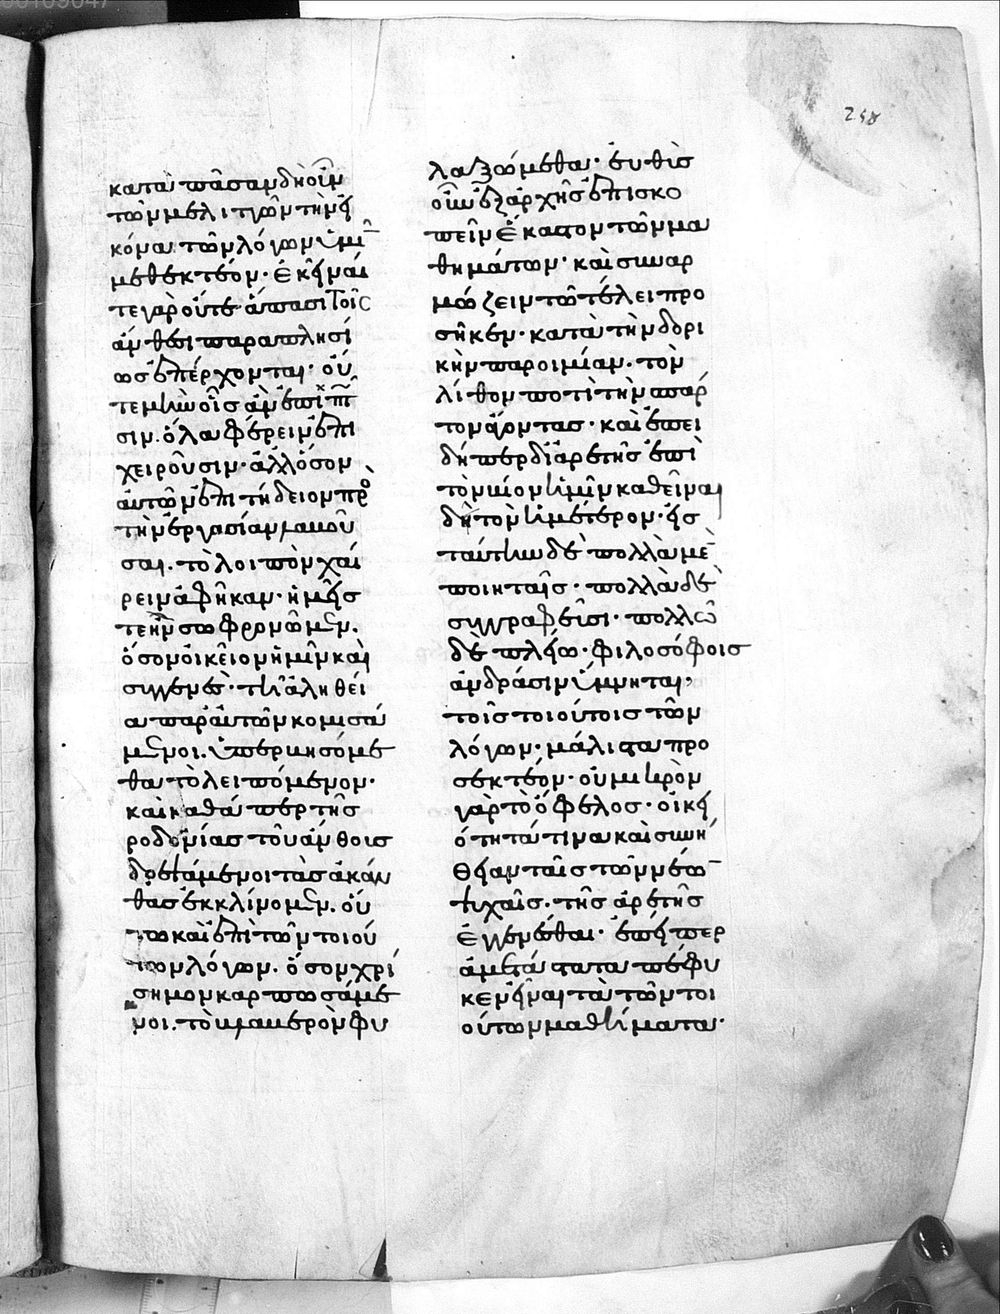 258
κατὰ πᾶσαν δὴ οὖν
τῶν μελιττῶν τὴν εἰ
κόνα τῶν λόγων ὑμῖ
μεθεκτέον· ἐκεῖναί
τε γὰρ οὔτε ἅπασι τοῖς
ἄνθεσι παραπλησί
ως ἐπέρχονται· οὔ
τε μὴν οἷς ἂν ἐπιπτῶ
σιν ὅλα φέρειν ἐπι
χειροῦσιν· ἀλλ' ὅσον
αὐτῶν ἐπιτήδειον πρὸ
τὴν ἐργασίαν λαβοῦ
σαι· τὸ λοιπὸν χαί
ρειν ἀφῆκαν· ἡμεῖς
τε ἢν σωφρονῶμεν·
ὅσον οἰκεῖον ἡμῖν καὶ
συγγενὲς τῆ ἀληθεί
α παρ' αὐτῶν κομισά
μενοι· ὑπερβησόμε
θα τὸ λειπόμενον·
καὶ καθάπερ τῆς
ροδωνίας τοῦ ἄνθους
δρεψάμενοι τὰς ἀκάν
θας ἐκκλίνομεν· οὕ
τω καὶ ἐπὶ τῶν τοιού
των λόγων· ὅσον χρή
σιμον καρπωσάμε
νοι· τὸ βλαβερὸν φυ
λαξώμεθα· εὐθὺς
οὖν ἐξ ἀρχῆς ἐπισκο
πεῖν ἕκαστον τῶν μα
θημάτων· καὶ συναρ
μόζειν τῶ τέλει προ
σῆκεν· κατὰ τὴν δωρι
κὴν παροιμίαν· τὸν
λίθον ποτὶ τὴν σπάρ
τον ἄγοντας· καὶ ἐπει
δήπερ δι' ἀρετῆς ἐπὶ
τὸν βίον ἡμῖν καθεῖναι
δεῖ τὸν ἡμέτερον· εἰς
ταύτην δὲ πολλὰ μὲ
ποιηταῖς· πολλὰ δὲ
συγγραφεῦσι· πολλῶ
δὲ πλείω φιλοσόφοις
ἀνδράσιν ὕμνηται·
τοῖς τοιούτοις τῶν
λόγων μάλιστα προ
σεκτέον· οὐ μικρὸν
γὰρ τὸ ὄφελος· οἰκει
ότητά τινα καὶ συνή
θειαν ταῖς τῶν νέω
ψυχαῖς τῆς ἀρετῆς
ἐγγενέσθαι· ἐπείπερ
ἀμετάστατα πέφυ
κεν εἶναι τὰ τῶν τοι
ούτων μαθήματα·